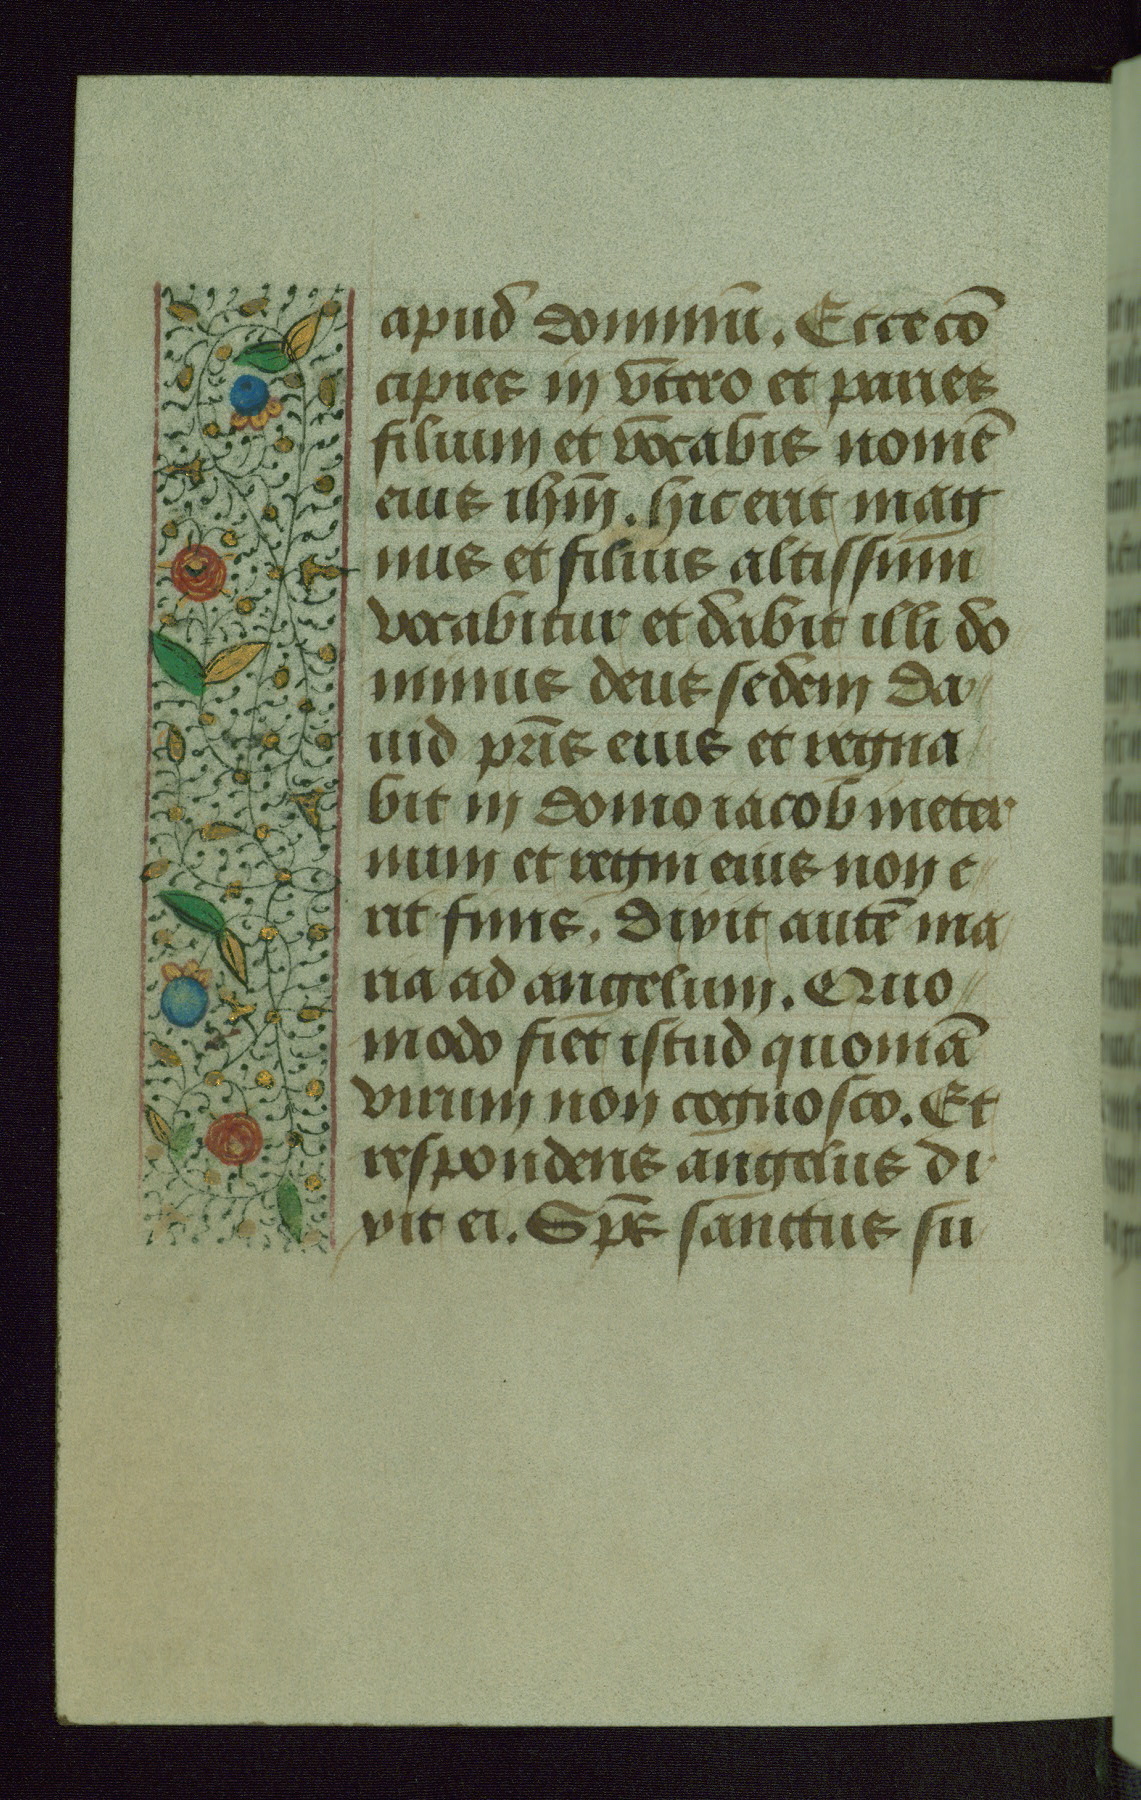 apud dominū. Ecce cō
cipies in vtero et paries
filium et vocabis nomē
eius ihm̄. hic erit mag
nus et filius altissimi
vocabitur et dabit illi do
minus deus sedem Da
uid pr̄is eius et regna
bit in domo iacob in eter
num et regni eius non e
rit finis. Dixit autē ma
ria ad angelum. Quo
modo fiet istud quoniā
virum non cognosco. Et
respondens angelus di
xit ei. Sp̄s sanctus su